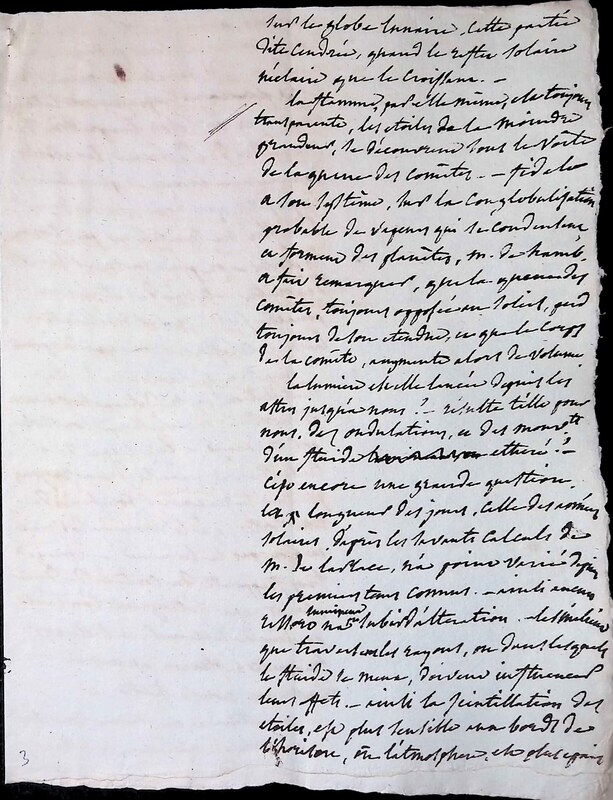 sur le globe lunaire, cette partie
dite cendrée, quand le reflet solaire
n'éclaire que le croissant. —
la flamme, par elle même, est toujours
transparente, les etoiles de la moindre
grandeur, se découvrent sous le voile
de la queue des comètes. — fidele
a son systême, sur la conglobulisation
probable de vapeurs qui se condensent,
et forment des planètes, m. de
a fait remarquer, que la queue des
comètes, toujours opposée au soleil, perd
toujours de son etendue, et que le corps
de la comète, augmente alors de volume
la lumiere est elle lancée depuis les
astres jusqu'a nous? — résulte t'elle pour
nous, des ondulations, et des mouvts
d'un fluide etheré? —
c'est encore une grande question.
la longueur des jours, celle des années
solaires, d'après les savants calculs de
m. de laplace, n'a point varié depuis
les premiers tems connus. — ainsi aucun
ressort lumineux n'a subi d'alteration. — les milieux
que traversent les rayons, ou dans lesquels
le fluide se meut, doivent influencer
leurs effets. — ainsi la scintillation des
etoiles, est plus sensible aux bords de
l'horison, où l'atmosphere, est plus epais
3